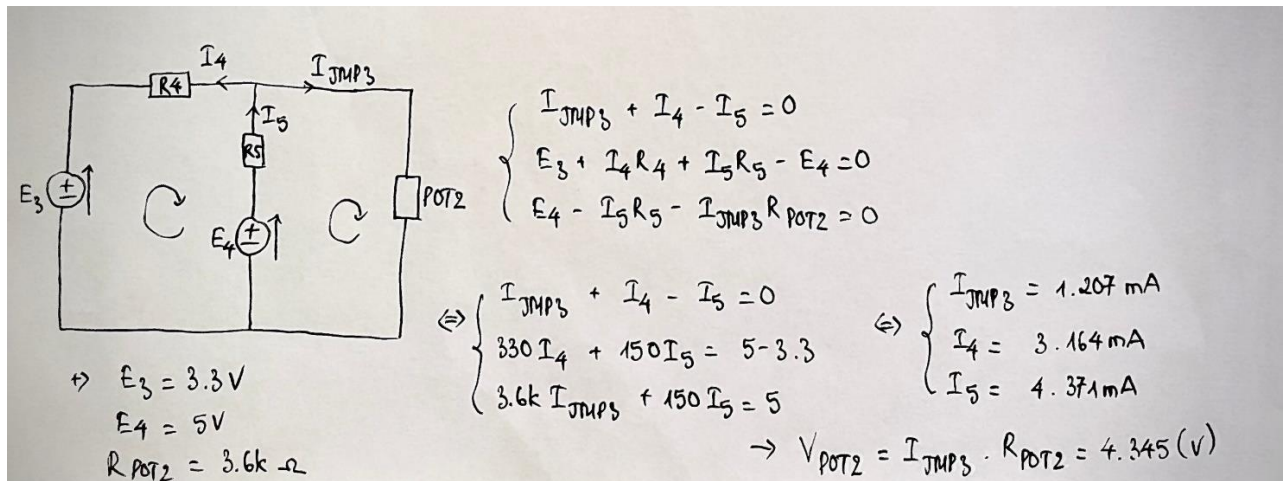 I4
I JMP3
R4
I5
R5
E3
±
POT2
E4
±
{ I JMP3 + I4 - I5 = 0
E3 + I4R4 + I5R5 - E4 = 0
E4 - I5R5 - I JMP3 R POT2 = 0
⇔ { I JMP3 + I4 - I5 = 0
330 I4 + 150 I5 = 5-3.3
3.6k I JMP3 + 150 I5 = 5
⇔ { I JMP3 = 1.207 mA
I4 = 3.164 mA
I5 = 4.371 mA
+> E3 = 3.3 V
E4 = 5V
R POT2 = 3.6k Ω
→ V POT2 = I JMP3 . R POT2 = 4.345 (V)